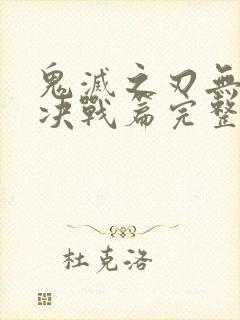 鬼滅之刃無
决戰篇完整
杜克洛